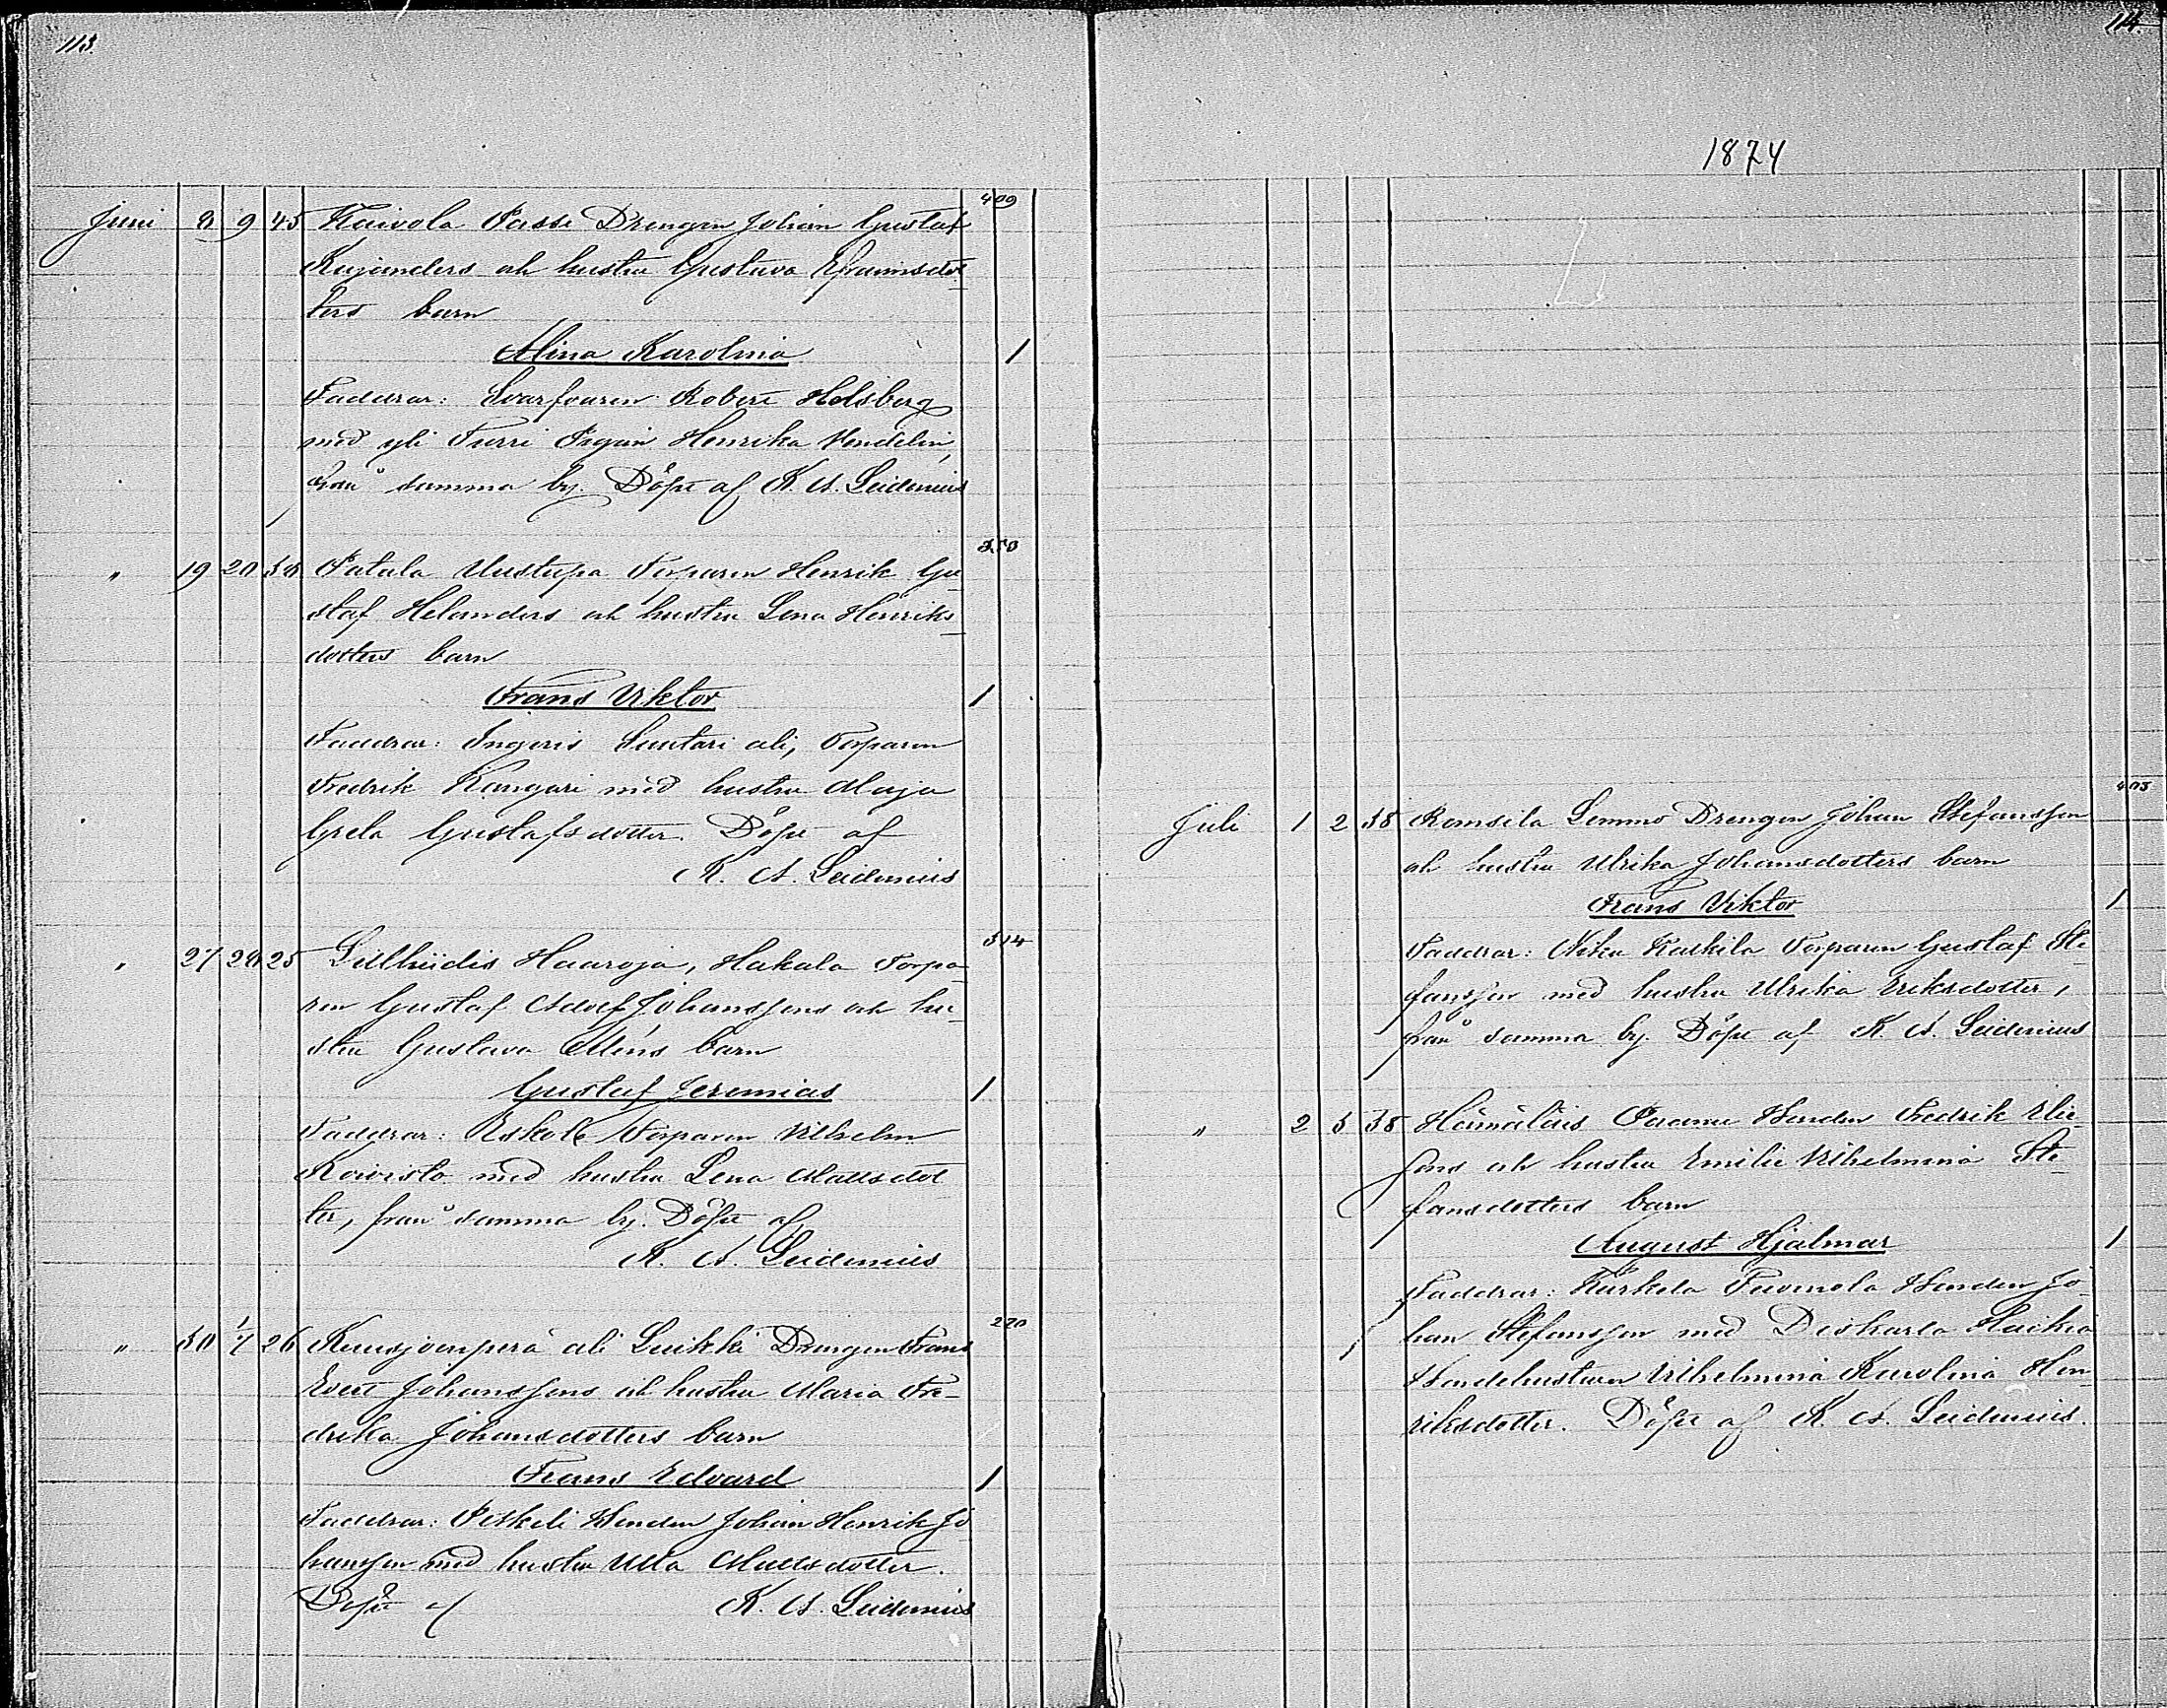 113.
409
Juni 8 9 45 Kaivola Passi Drengen Johan Gustaf
Kujanders och hustru Gustava Efraimsdot
ters barn
Alina Karolina 1
Faddrar: Svarfvaren Robert Helsberg
med yli Turri Pigan Henrika Vendelin,
från samma by. Döpt af K. A. Leidenius
350
" 19 20 30 Patala Uustupa Torparen Henrik Gu
staf Helanders och hustru Lena Henriks
dotters barn
Frans Viktor 1
Faddrar: Ingeris Suutari ali, Torparen
Fredrik Kangari med hustru Maja
Greta Gustafsdotter. Döpt af
K. A. Leidenius
514
" 27 28 25 Haaroja, Hakala Torpa
ren Gustaf Adolf Johanssons och hu
stru Gustava barn
Gustaf Jeremias 1
Faddrar: Eskola Torparen Vilhelm
Koivisto med hustru Lena Mattsdot
ter, från samma by. Döpt af
K. A. Leidenius
270
" 30 1/7 26 Kuusjoenperä ali Luikki Drengen Frans
Evert Johanssons och hustru Maria Fre-
drika Johansdotters barn
Frans Edvard 1
Faddrar: Bonden Johan Henrik Jo
hansson med hustru Ulla Mattsdotter.
Döpt af K. A. Leidenius
114.
1874
403
Juli 1 2 38 Romsila Lemmo Drengen Johan Stefansson
och hustru Ulrika Johansdotters barn
Frans Viktor 1
Faddrar: Kaukila Torparen Gustaf Ste
fansson med hustru Ulrika Eriksdotter,
från samma by. Döpt af K. A. Leidenius
" 2 5 38 Hämäläis Paavu Bonden Fredrik Elie
sons och hustru Emilie Vilhelmina Ste
fansdotters barn
August Hjalmar 1
Faddrar: Kärkelä Tuomola Bonden Jo
han Stefansson med Haikio
Bondehustrun Vilhelmina Karolina Hen
riksdotter. Döpt af K. A. Leidenius.